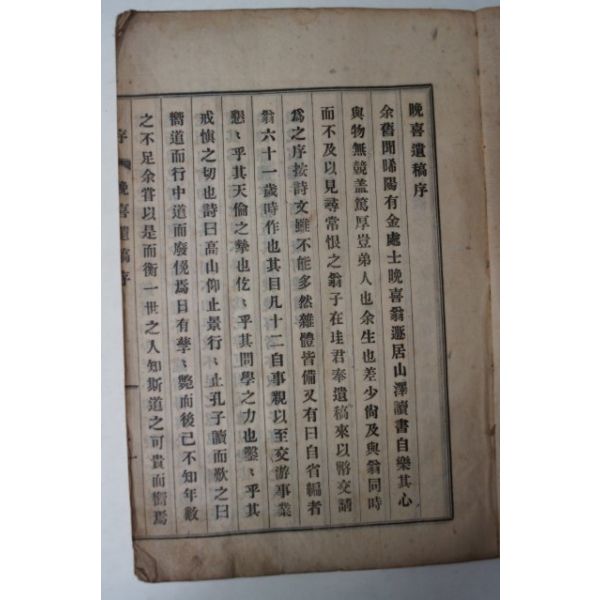 晩喜遺稿序
余舊聞晞陽有金處士晩喜翁遯居山澤讀書自樂其心
與物無競盖篤厚豈弟人也余生也差少尙及與翁同時
而不及以見尋常恨之翁子在珪君奉遺稿來以幣交請
爲之序按詩文雖不能多然雜體皆備又有曰自省編者
翁六十一歲時作也其目凡十二自事親以至交游事業
懇〻乎其天倫之摯也仡〻乎其問學之力也鑿〻乎其
戒愼之切也詩曰高山仰止景行〻止孔子讀而歎之曰
嚮道而行中道而廢俛焉日有孶〻斃而後已不知年數
之不足余嘗以是而衡一世之人知斯道之可貴而嚮焉
序 晩喜遺稿序 一